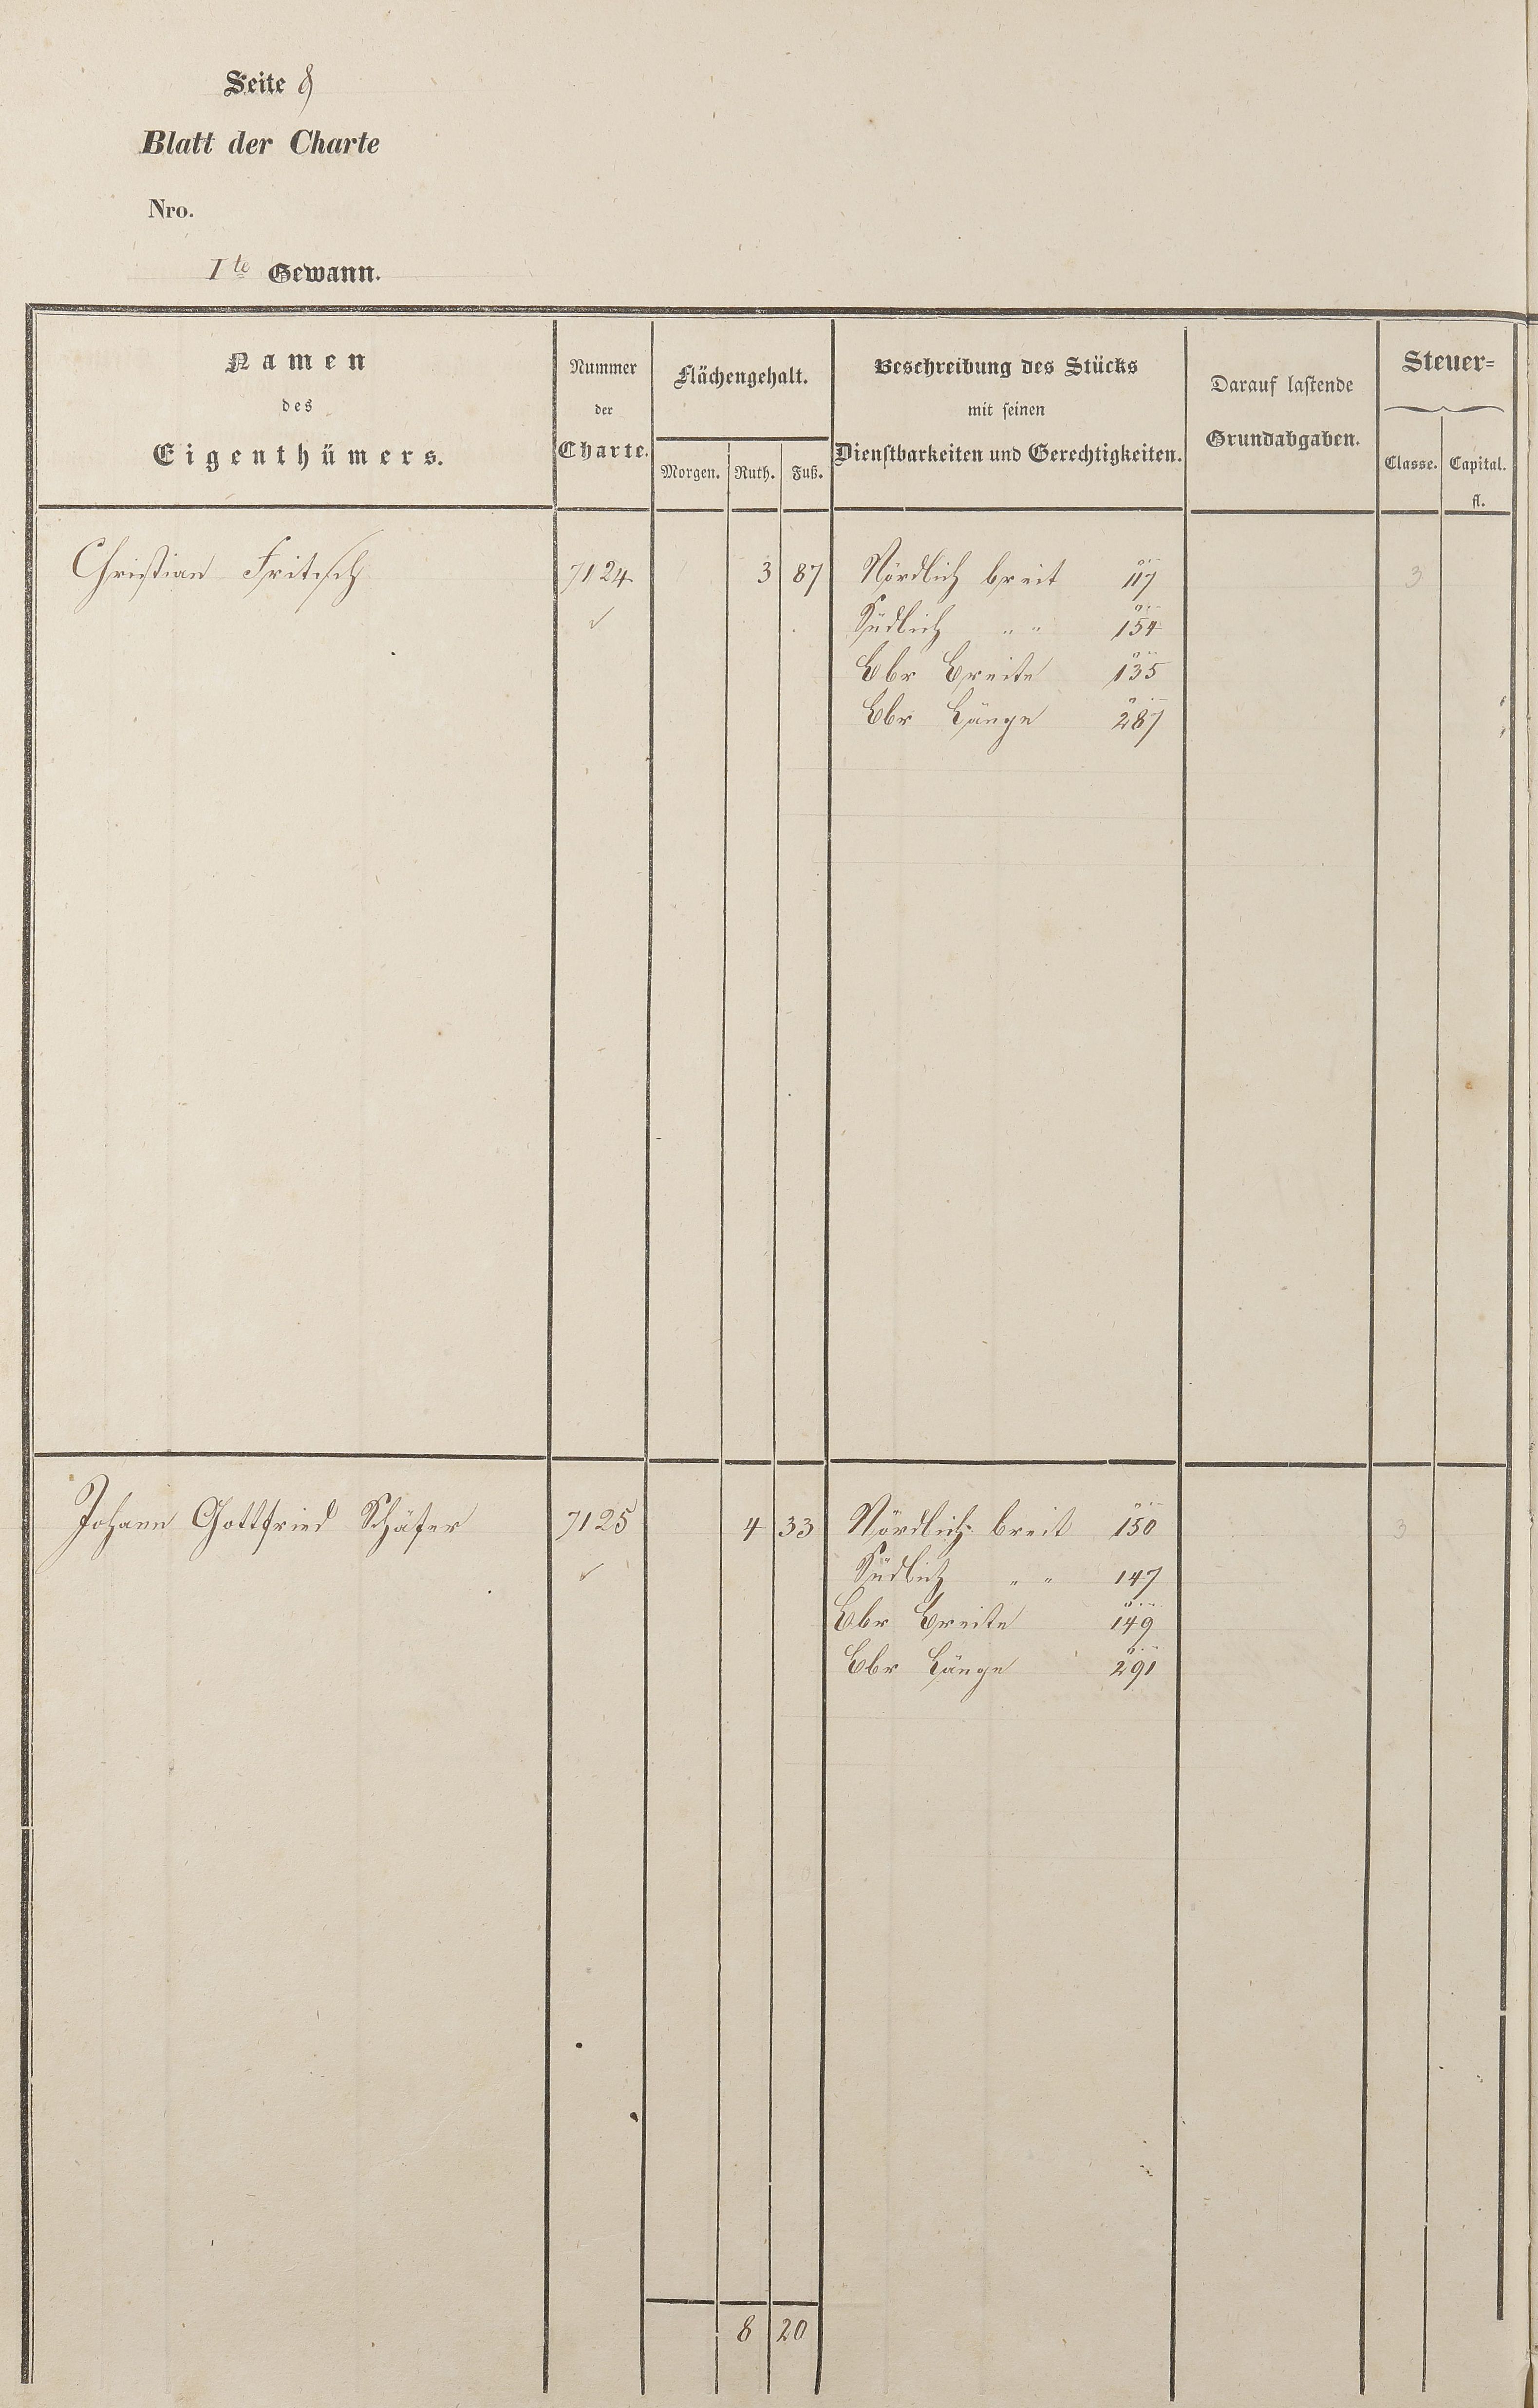 Seite 8
Blatt der Charte
Nro.
Ite Gewann.
Namen
des
Eigenthümers.
Nummer
der
Charte.
Flächengehalt.
Morgen. Ruth. Fuß.
Beschreibung des Stücks
mit seinen
Dienstbarkeiten und Gerechtigkeiten.
Darauf lastende
Grundabgaben.
Steuer=
Classe. Capital.
fl.
Christian Fritsch 7124 3 87 Nördlich breit 117 3
✓ Südlich " " 154
Ebr Breite 135
Ebr Länge 287
Johann Gottfried Schäfer 7125 4 33 Nördlich breit 150 3
✓ Südlich " " 147
Ebr Breite 149
Ebr Länge 291
8 20